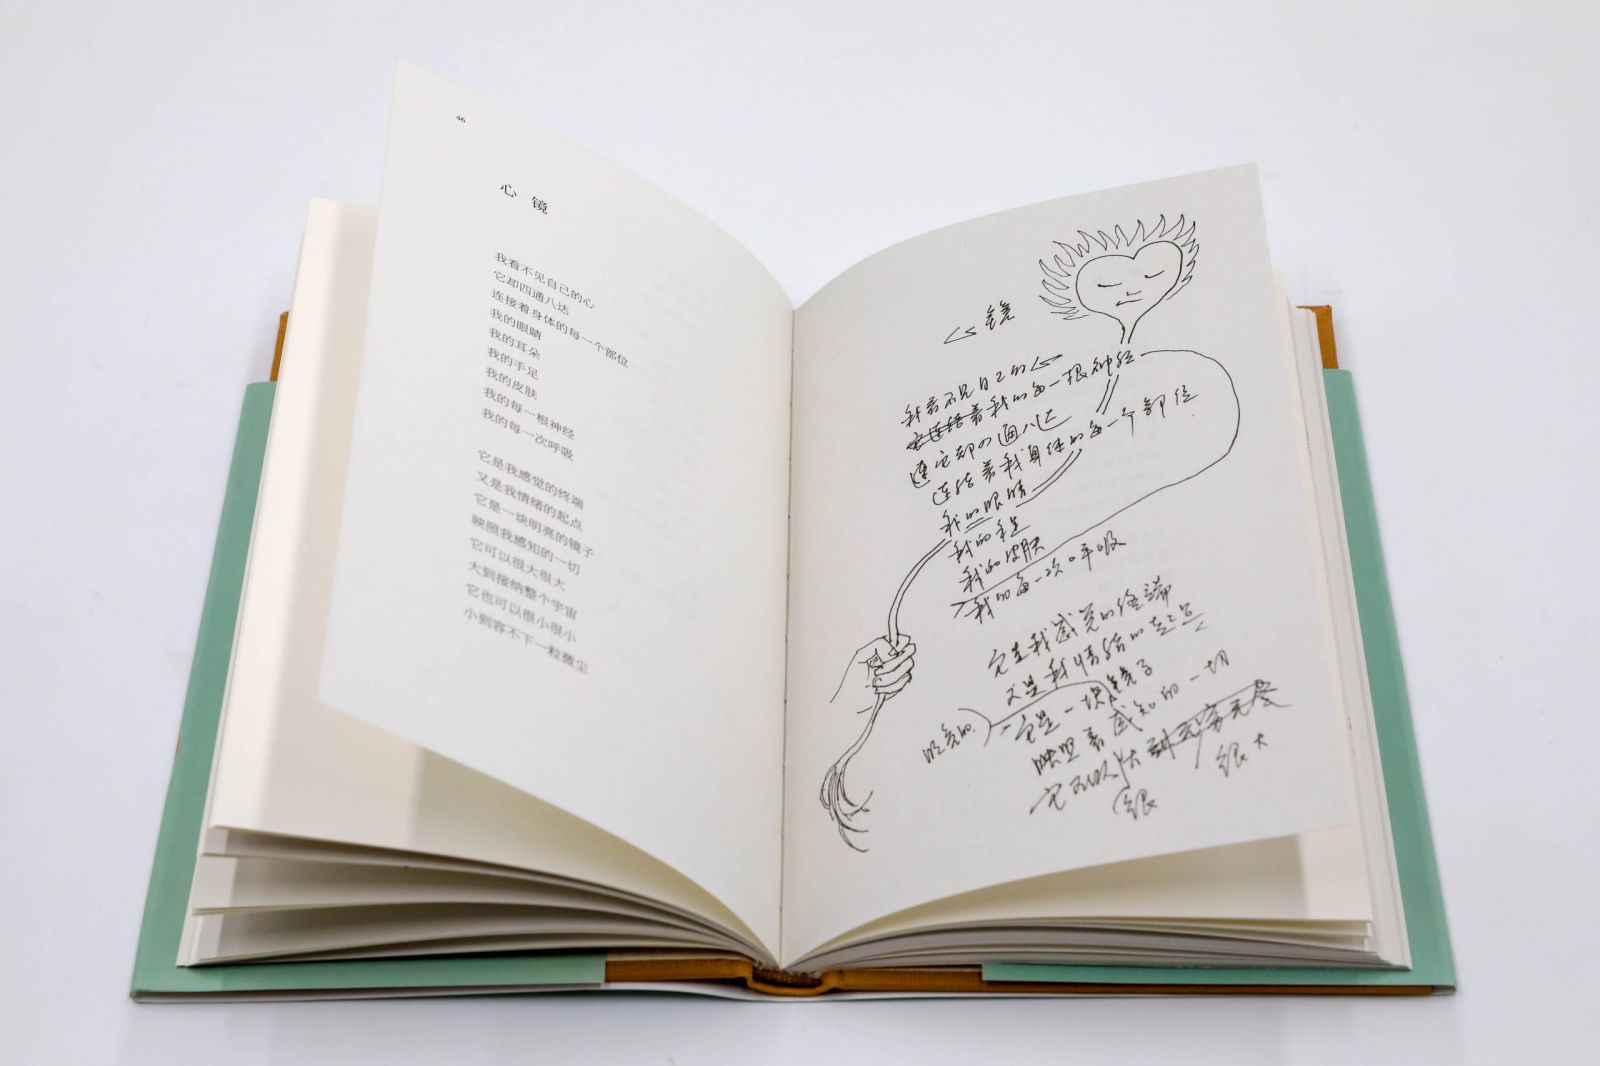 46
心 镜
我看不见自己的心
它却四通八达
连接着身体的每一个部位
我的眼睛
我的耳朵
我的手足
我的皮肤
我的每一根神经
我的每一次呼吸
它是我感觉的终端
又是我情绪的起点
它是一块明亮的镜子
映照我感知的一切
它可以很大很大
大到接纳整个宇宙
它也可以很小很小
小到容不下一粒微尘
心镜
我看不见自己的心
连结着我的每一根神经
它却四通八达
连结着我身体的每一个部位
我的眼睛
我的手足
我的皮肤
我的每一次呼吸
它是我感觉的终端
又是我情绪的起点
明亮的
它是一块镜子
映照着感知的一切
它可以大到无穷无尽
很 很大